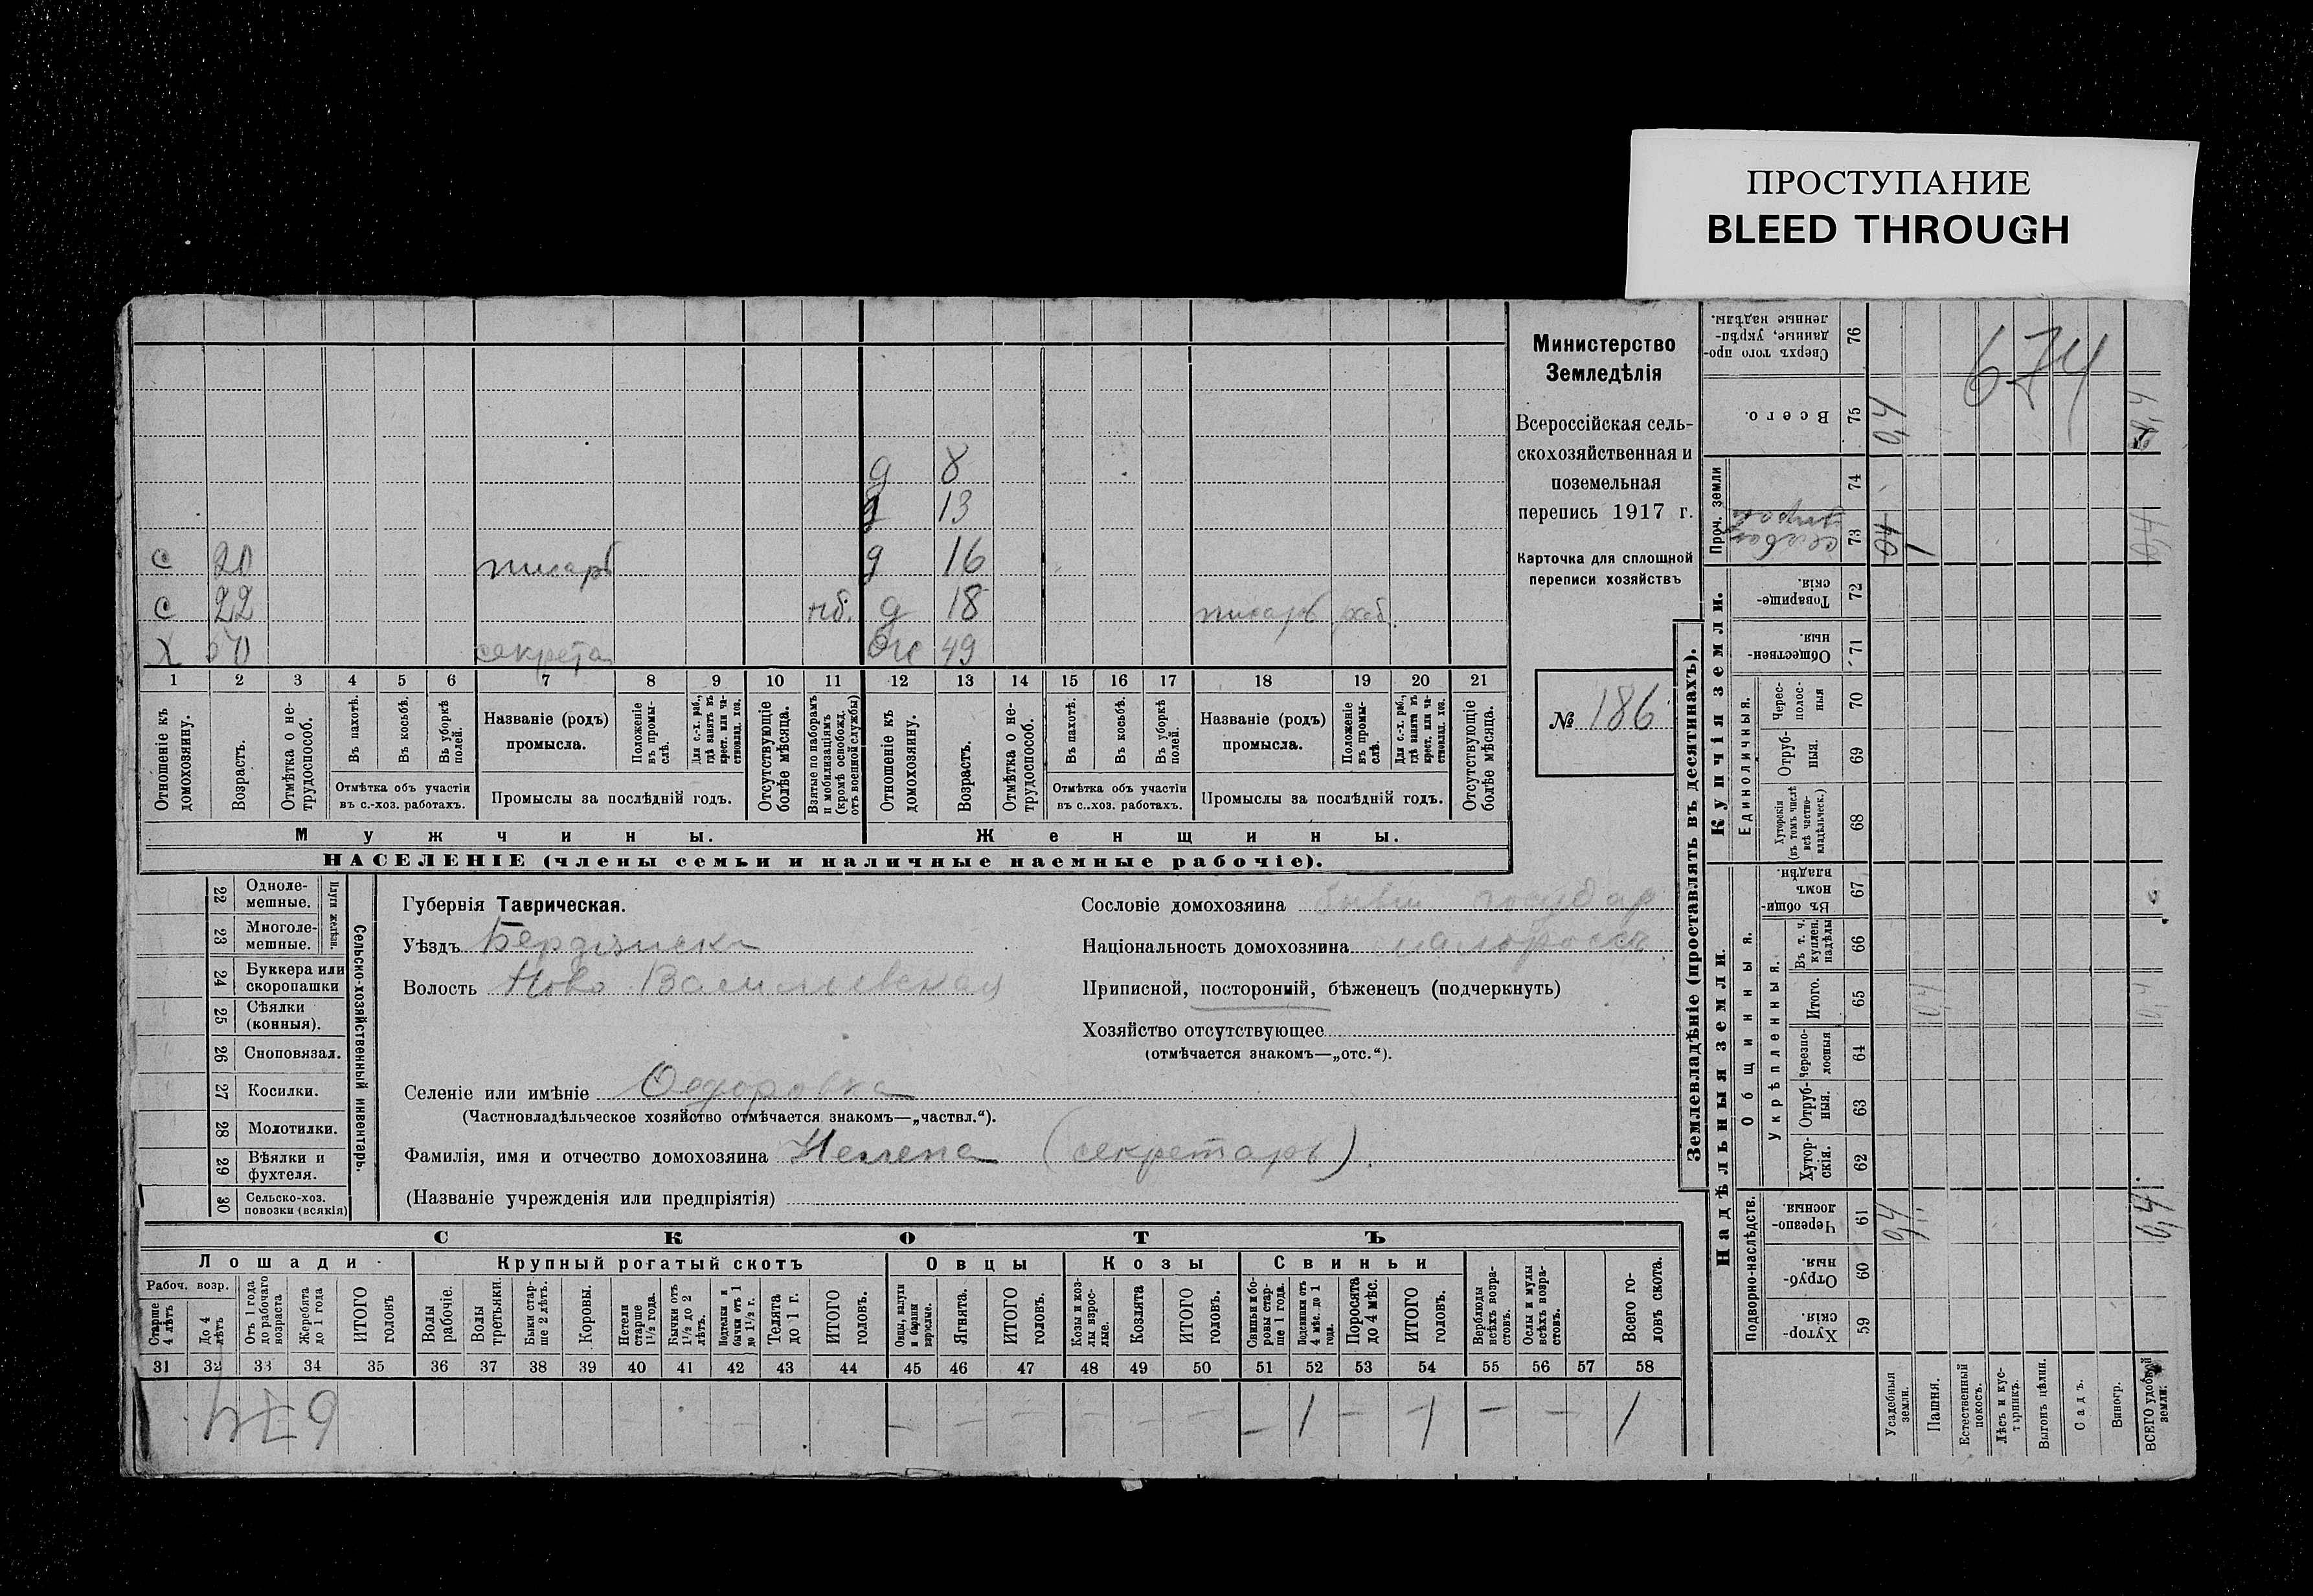 ПРОСТУПАНИЕ
BLEED THROUGH
д 8
д 13
с 20 писарь д 16
с 22 нб. д 18 писарь раб.
х 50 секрета ж 49
1 2 3 4 5 6 7 8 9 10 11 12 13 14 15 16 17 18 19 20 21
Отношеніе къ домохозяину.
Возрастъ.
Отмѣтка о нетрудоспособ.
Въ пахотѣ.
Въ косьбѣ.
Въ уборкѣ полей.
Отмѣтка объ участіи въ с.-хоз. работахъ.
Названіе (родъ) промысла.
Положеніе въ промыслѣ.
Для с.-х. раб., гдѣ занятъ въ крест. или частновлад. хоз.
Промыслы за послѣдній годъ.
Отсутствующіе болѣе мѣсяца.
Взятые по наборамъ и мобилизаціямъ (кромѣ освобожд. отъ военной службы)
Отношеніе къ домохозяину.
Возрастъ.
Отмѣтка о нетрудоспособ.
Въ пахотѣ.
Въ косьбѣ.
Въ уборкѣ полей.
Отмѣтка объ участіи въ с..хоз. работахъ.
Названіе (родъ) промысла.
Положеніе въ промыслѣ.
Для с.-х. раб., гдѣ занята въ крест. или частновлад. хоз.
Промыслы за послѣдній годъ.
Отсутствующіе болѣе мѣсяца.
Мужчины.
Женщины.
НАСЕЛЕНІЕ (члены семьи и наличные наемные рабочіе).
Министерство
Земледѣлія
Всероссійская сель-
скохозяйственная и
поземельная
перепись 1917 г.
Карточка для сплошной
переписи хозяйствъ
№ 186
Сельско-хозяйственный инвентарь.
Плуги желѣзн.
22 Одноле-
мешные.
23 Многоле-
мешные.
24 Буккера или
скоропашки
25 Сѣялки
(конныя).
26 Сноповязал.
27 Косилки.
28 Молотилки.
29 Вѣялки и
фухтеля.
30 Сельско-хоз.
повозки (всякія)
Губернія Таврическая.
Уѣздъ Бердянска
Волость Ново Васильевская
Селеніе или имѣніе Ѳедоровка
(Частновладѣльческое хозяйство отмѣчается знакомъ—„частвл.“).
Фамилія, имя и отчество домохозяина (секретарь).
(Названіе учрежденія или предпріятія)
Сословіе домохозяина бывш государ
Національность домохозяина малороссъ
Приписной, посторонній, бѣженецъ (подчеркнуть)
Хозяйство отсутствующее
(отмѣчается знакомъ—„отс.“).
СКОТЪ
Лошади
Крупный рогатый скотъ
Овцы
Козы
Свиньи
Рабоч. возр.
Старше 4 лѣтъ
До 4 лѣтъ
Отъ 1 года до рабочаго возраста
Жеребята до 1 года
ИТОГО головъ
Волы рабочіе.
Волы третьяки.
Быки старше 2 лѣтъ.
Коровы.
Нетели старше 1½ года.
Бычки отъ 1½ до 2 лѣтъ.
Подтелки и бычки отъ 1 до 1½ г.
Телята до 1 г.
ИТОГО головъ.
Овцы, валухи и бараны взрослые.
Ягнята.
ИТОГО головъ.
Козы и козлы взрослые.
Козлята
ИТОГО головъ.
Свиньи и боровы старше 1 года.
Подсвинки отъ 4 мѣс. до 1 года.
Поросята до 4 мѣс.
ИТОГО головъ.
Верблюды всѣхъ возрастовъ.
Ослы и мулы всѣхъ возрастовъ.
Всего головъ скота.
31 32 33 34 35 36 37 38 39 40 41 42 43 44 45 46 47 48 49 50 51 52 53 54 55 56 57 58
674
– – – – – – – 1 – 1 – – 1
Землевладѣніе (проставлять въ десятинахъ).
Надѣльныя земли.
Купчія земли.
Проч. земли
Подворно-наслѣдств.
Общинныя.
Укрѣпленныя.
Единоличныя.
Сверхъ того проданные, укрѣпленные надѣлы. 76
Всего. 75
74
73
Товарищескія. 72
Общественныя. 71
Чересполосныя 70
Отрубныя. 69
Хуторскія (въ томъ числѣ всѣ частновладѣльческ.) 68
Въ общинномъ владѣн. 67
Въ т. ч. куплен. надѣлы 66
Итого. 65
Черезполосныя 64
Отрубныя. 63
Хуторскія. 62
Черезполосныя. 61
Отрубныя. 60
Хуторскія. 59
Усадебныя земли.
Пашня.
Естественный покосъ.
Лѣсъ и кустарникъ.
Выгонъ цѣлин.
Садъ.
Виногр.
ВСЕГО удобной земли.
674
0,4
0,4
0,4
0,4